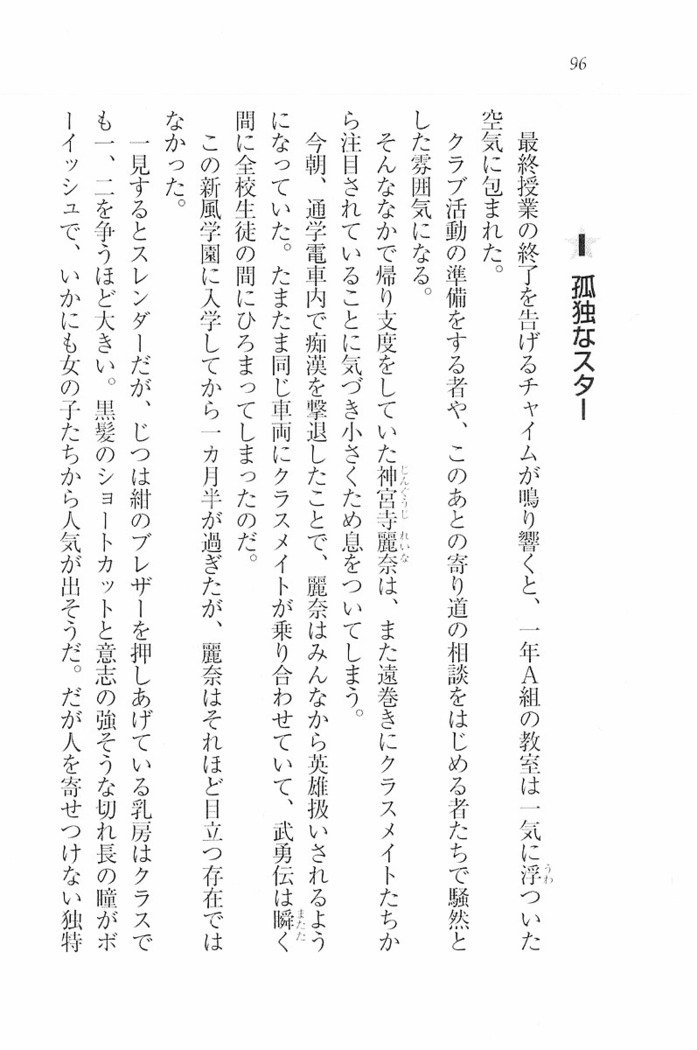 96
1 孤独なスター
最終授業の終了を告げるチャイムが鳴り響くと、一年A組の教室は一気に浮ついた
空気に包まれた。
クラブ活動の準備をする者や、このあとの寄り道の相談をはじめる者たちで騒然と
した雰囲気になる。
そんななかで帰り支度をしていた神宮寺麗奈は、また遠巻きにクラスメイトたちか
ら注目されていることに気づき小さくため息をついてしまう。
今朝、通学電車内で痴漢を撃退したことで、麗奈はみんなから英雄扱いされるよう
になっていた。たまたま同じ車両にクラスメイトが乗り合わせていて、武勇伝は瞬く
間に全校生徒の間にひろまってしまったのだ。
この新風学園に入学してから一カ月半が過ぎたが、麗奈はそれほど目立つ存在では
なかった。
一見するとスレンダーだが、じつは紺のブレザーを押しあげている乳房はクラスで
も一、二を争うほど大きい。黒髪のショートカットと意志の強そうな切れ長の瞳がボ
ーイッシュで、いかにも女の子たちから人気が出そうだ。だが人を寄せつけない独特